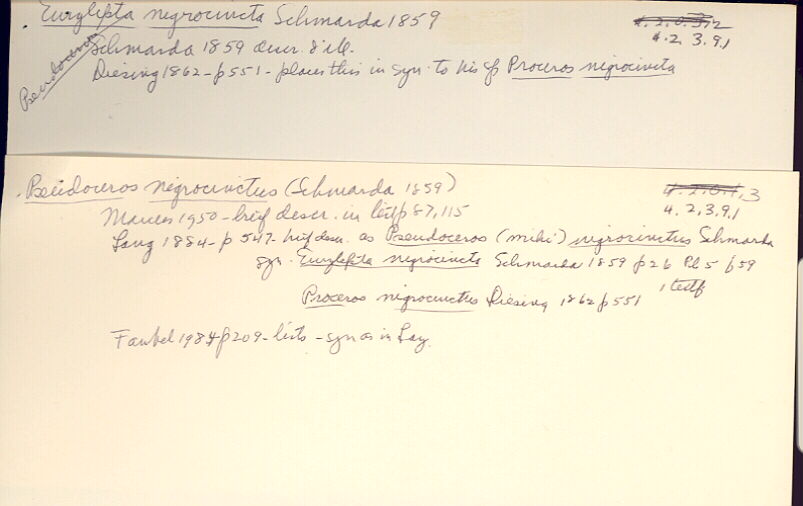 . Eurylepta negrocincta Schmarda 1859
4.2.0.3,2
4.2.3.9.1
Pseudoceros
Schmarda 1859 descr. & ill.
Diesing 1862 - p551 - places this in syn. to his sp Proceros negrocincta
. Pseudoceros negrocinctus (Schmarda 1859)
3
4.2,3,9.1
Marcus 1950 - brief descr. in p 87, 115
Lang 1884 - p 547 - brief descr. as Pseudoceros (mihi) nigrocinctus Schmarda
syn. Eurylepta negrocincta Schmarda 1859 p 26 Pl 5 f 59
Proceros nigrocinctus Diesing 1862 p 551
Faubel 1984 p 209 - lists - syn as in Lang.